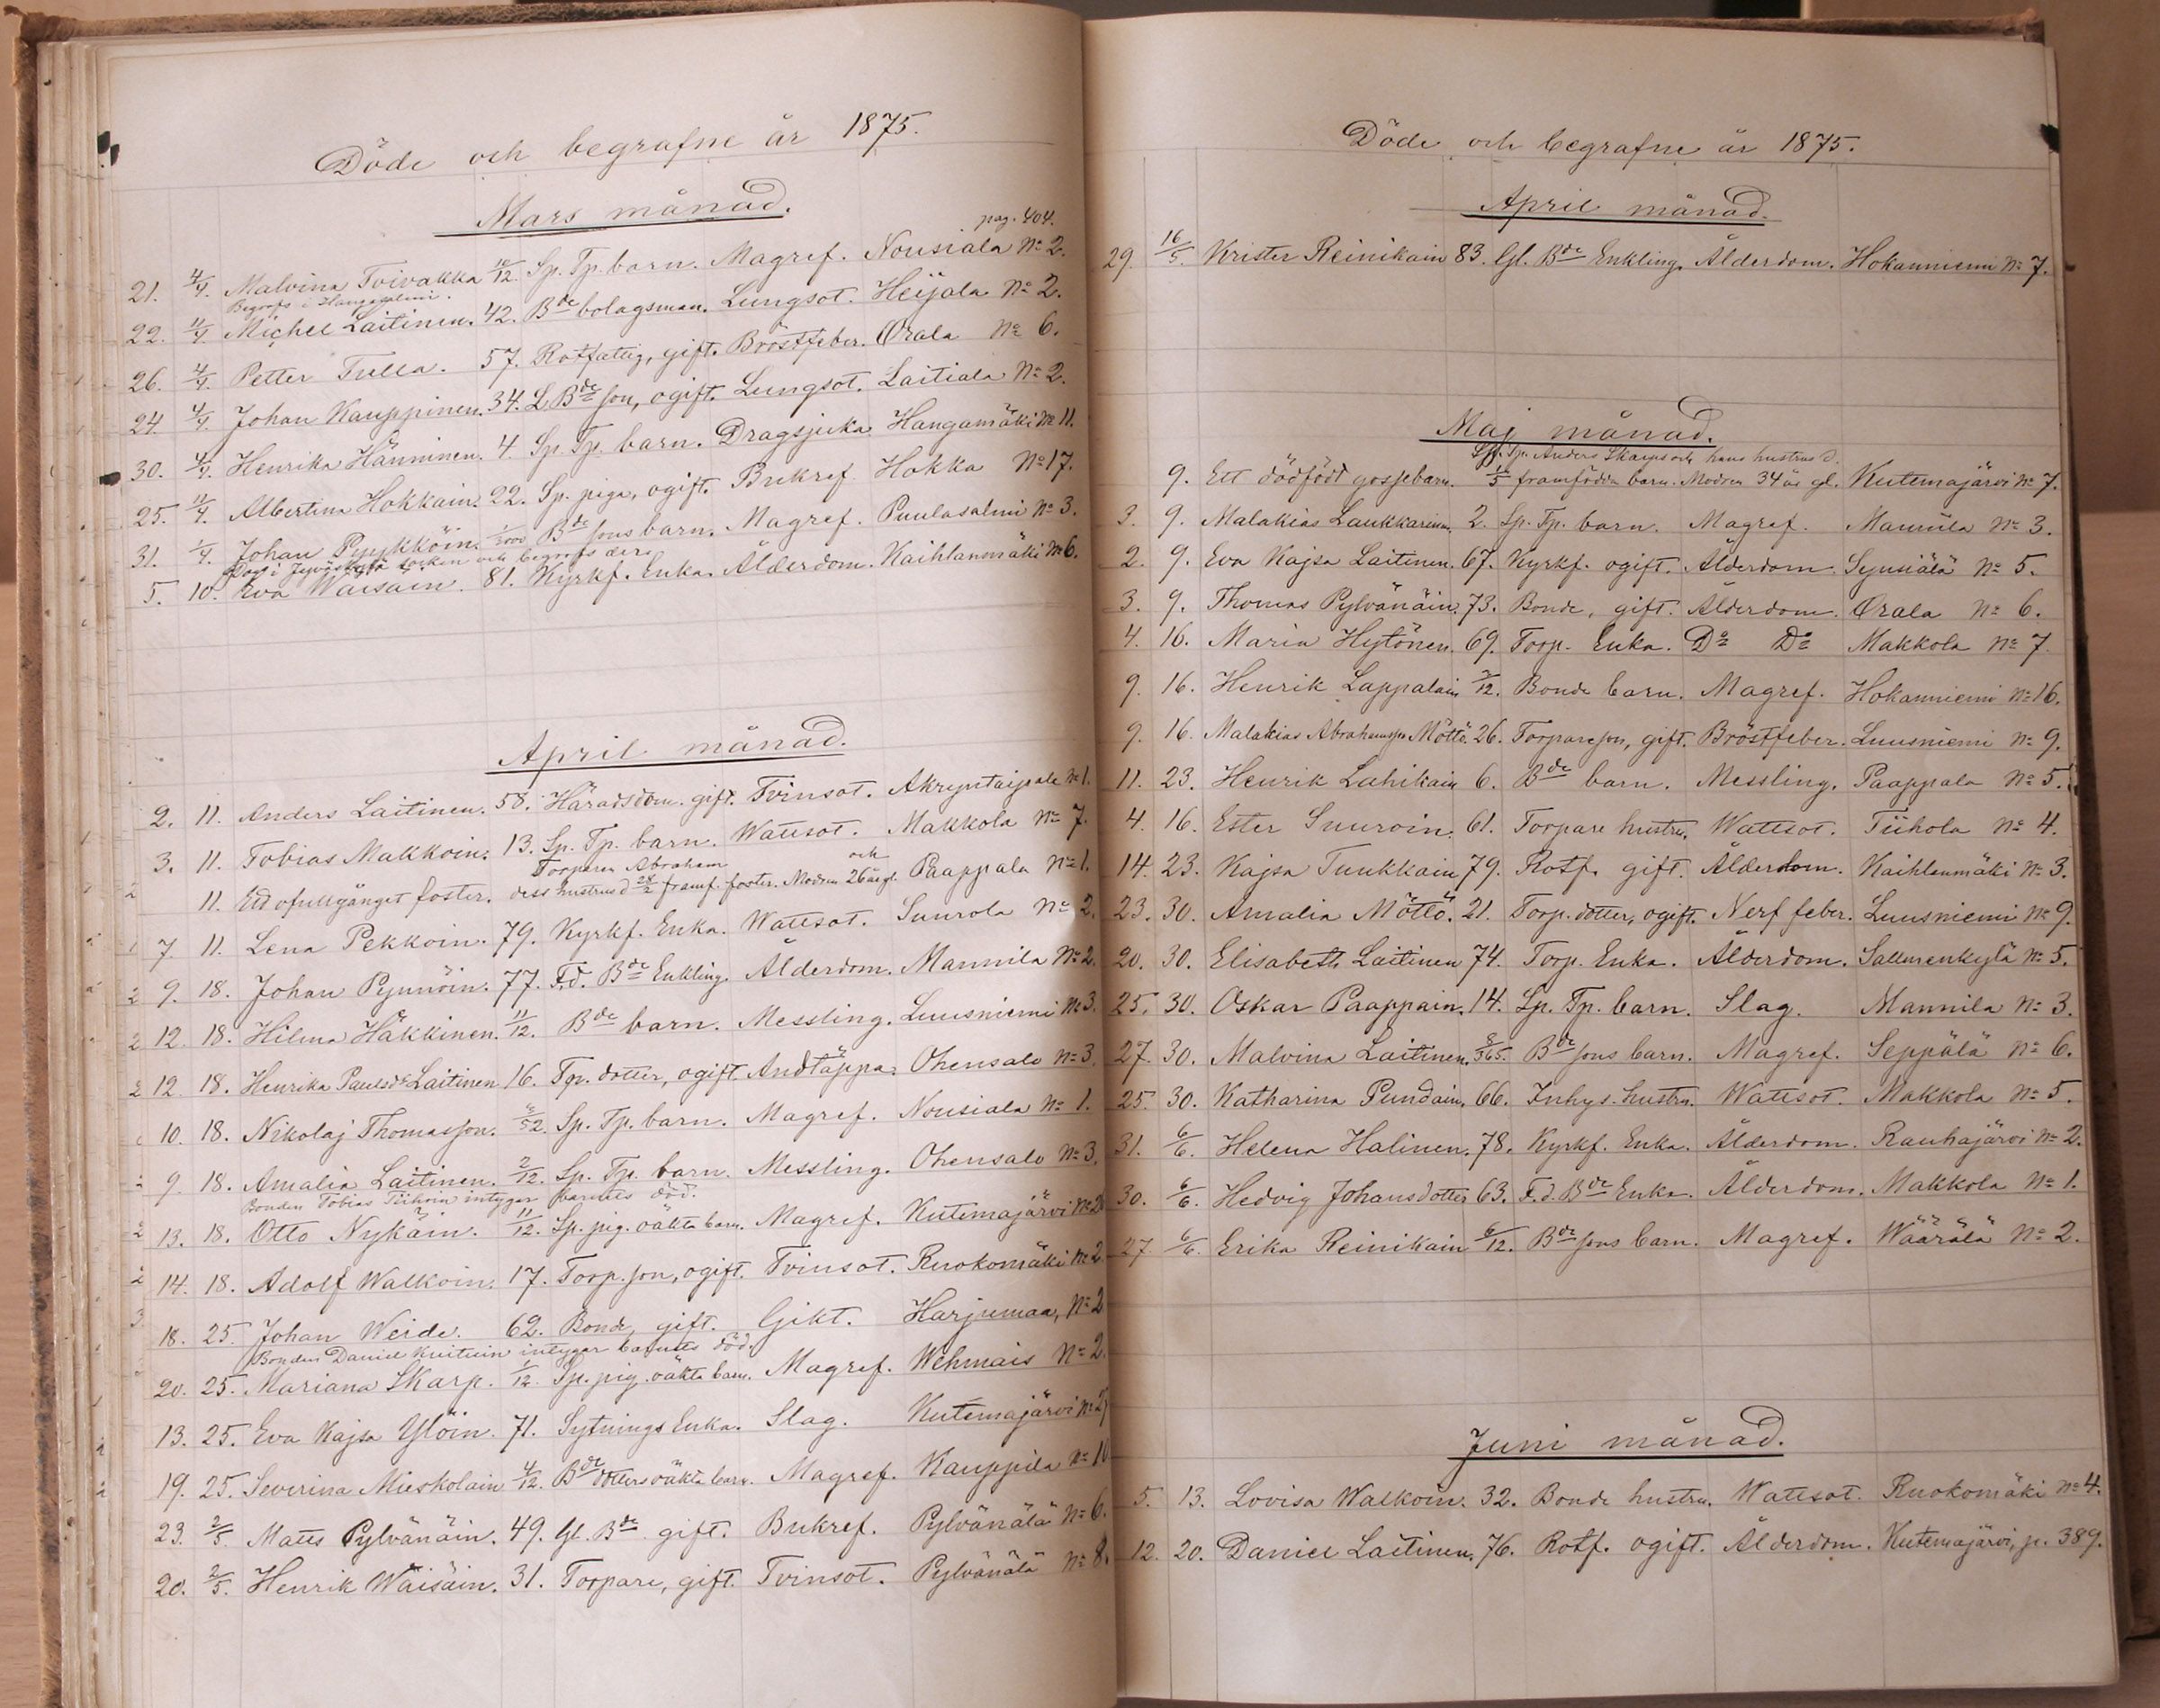 Döde och begrafne år 1875.
Mars månad.
pag. 404.
21. 4/4. Malvina Toivakka 10/12. Sp. Tp. barn. Magref. Nousiala No 2.
Begrofs i Hangasalmi.
22. 11/4. Michel Laitinen. 42. Bde bolagsman. Lungsot. Heijala No 2.
26. 4/4. Petter Tulla. 57. Rotfattig, gift. Bröstfeber. Orala No 6.
24. 4/4. Johan Kauppinen. 34. L. Bde son, ogift. Lungsot. Laitiala No 2.
30. 4/4. Henrika Hänninen. 4. Sp. Tp. barn. Dragsjuka. Hangamäki No 11.
25. 11/4. Albertina Hokkain. 22. Sp. piga, ogift. Bukref. Hokka No 17.
31. 1/4. Johan Pyykköin. Bde sons barn. Magref. Puulasalmi No 3.
Dog i Jyväskylä socken och begrofs ders
5. 10. Eva Wäisäin. 81. Kyrkf. Enka. Ålderdom. Kaihlanmäki No 6.
April månad.
2. 11. Anders Laitinen. 50. Häradsdom. gift. Tvinsot. Akryntaipale No 1.
3. 11. Tobias Makkoin. 13. Sp. Tp. barn. Wattsot. Makkola No 7.
Torparen Abraham och
11. Ett ofullgånget foster. dess hustrus d 28/2 framf. foster. Modren 26 år gl. Paappala No 1.
7. 11. Lena Pekkoin. 79. Kyrkf. Enka. Wattsot. Suurola No 2.
9. 18. Johan Pynnöin. 77. F.d. Bde Enkling. Ålderdom. Mannila No 2.
12. 18. Hilma Häkkinen. 11/12. Bde barn. Messling. Luusniemi No 3.
12. 18. Henrika Paulsdr Laitinen 16. Tpr. dotter, ogift. Andtäppa. Ohensalo No 3.
10. 18. Nikolaj Thomasson. 6/52. Sp. Tp. barn. Magref. Nousiala No 1.
9. 18. Amalia Laitinen. 2/12. Sp. Tp. barn. Messling. Ohensalo No 3.
Bonden Tobias Tiihoin intygar barnets död.
13. 18. Otto Nykäin. 11/12. Sp. pig. oäkta barn. Magref. Kutemajärvi No 2
14. 18. Adolf Walkoin. 17. Torp. son, ogift. Tvinsot. Ruokomäki No 2.
18. 25. Johan Weide. 62. Bonde, gift. Gikt. Harjumaa, No 2
Bonden Daniel Kuituin intygar barnets död.
20. 25. Mariana Skarp. 1/12. Sp. pig. oäkta barn. Magref. Wehmais No 2.
13. 25. Eva Kajsa Ylöin. 71. Sytnings Enka. Slag. Kutemajärvi No 2
19. 25. Severina Mieskolain 4/12. Bde dotters oäkta barn. Magref. Kauppila No 10
23. 2/5. Matts Pylvänäin. 49. Gl. Bde gift. Bukref. Pylvänälä No 6.
20. 2/5. Henrik Wäisäin. 31. Torpare, gift. Tvinsot. Pylvänälä No 8.
Döde och begrafne år 1875.
April månad.
29. 16/5. Krister Reinikain 83. Gl. Bde Enkling. Ålderdom. Hokanniemi No 7.
Maj månad.
Sp. Tp. Anders Skarps och hans hustrus d.
9. Ett dödfödt gossebarn. 1/5 framfödda barn. Modren 34 år gl. Kutemajärvi No 7.
3. 9. Malakias Laukkarinen. 2. Sp. Tp. barn. Magref. Mannila No 3.
2. 9. Eva Kajsa Laitinen. 67. Kyrkf. ogift. Ålderdom. Synsiälä No 5.
3. 9. Thomas Pylvänäin. 73. Bonde, gift. Ålderdom. Orala No 6.
4. 16. Maria Hytönen. 69. Torp. Enka. Do Do Makkola No 7.
9. 16. Henrik Lappalain 2/12. Bonde barn. Magref. Hokanniemi No 16.
9. 16. Malakias Abrahamsson Möttö. 26. Torpareson, gift. Bröstfeber. Luusniemi No 9.
11. 23. Henrik Lahikain 6. Bde barn. Messling. Paappala No 5.
4. 16. Ester Suuroin. 61. Torpare hustru. Wattsot. Tiihola No 4.
14. 23. Kajsa Tuukkain 79. Rotf. gift. Ålderdom. Kaihlanmäki No 3.
23. 30. Amalia Möttö. 21. Torp. dotter, ogift. Nerf feber. Luusniemi No 9.
20. 30. Elisabeth Laitinen 74. Torp. Enka. Ålderdom. Sallmenkylä No 5.
25. 30. Oskar Paappain. 14. Sp. Tp. barn. Slag. Mannila No 3.
27. 30. Malvina Laitinen. 8/365. Bde sons barn. Magref. Seppälä No 6.
25. 30. Katharina Pundain. 66. Inhys. hustru. Wattsot. Makkola No 5.
31. 6/6. Helena Halinen. 78. Kyrkf. Enka. Ålderdom. Rauhajärvi No 2.
30. 6/6. Hedvig Johansdotter 63. F.d. Bde Enka. Ålderdom. Makkola No 1.
27. 6/6. Erika Reinikain 6/12. Bde sons barn. Magref. Wäärälä No 2.
Juni månad.
5. 13. Lovisa Walkoin. 32. Bonde hustru. Wattsot. Ruokomäki No 4.
12. 20. Daniel Laitinen. 76. Rotf. ogift. Ålderdom. Kutemajärvi, p. 389.